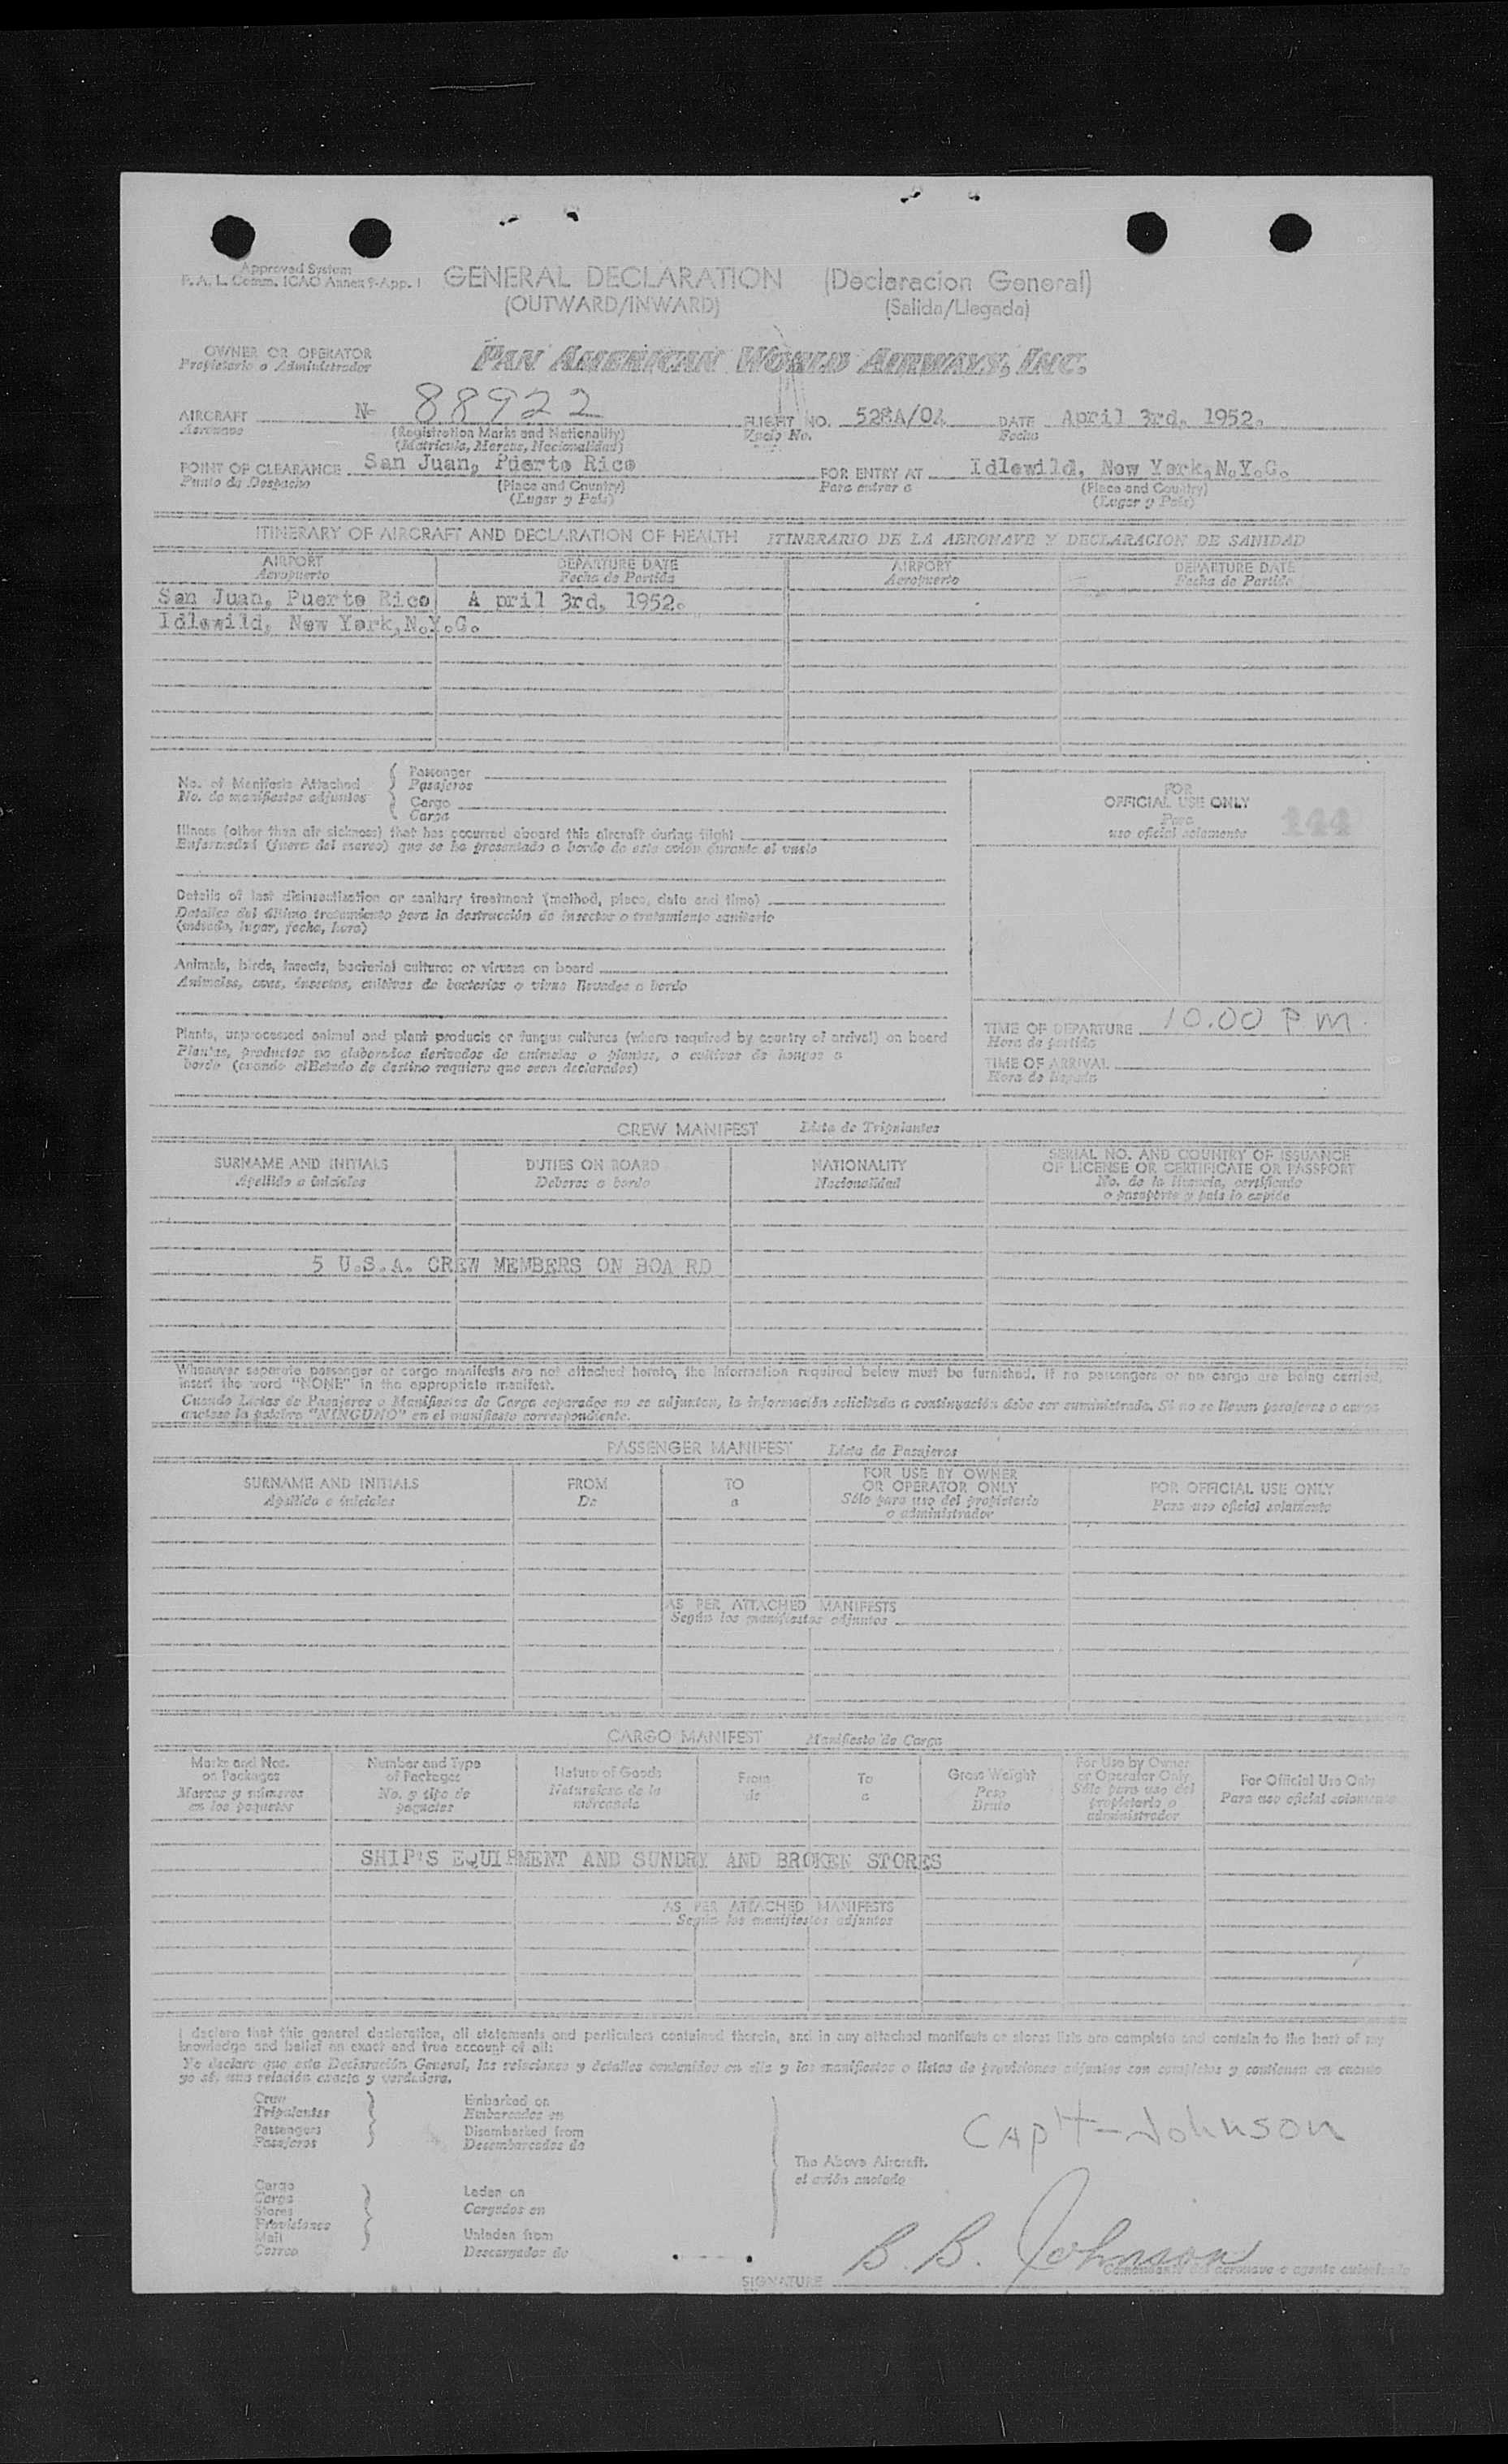 Approved System
F. A. L. Comm. ICAO Annex 9-App. 1
GENERAL DECLARATION (Declaracion General)
(OUTWARD/INWARD) (Salida/Llegada)
OWNER OR OPERATOR
Propietario o Administrador
PAN AMERICAN WORLD AIRWAYS, INC.
AIRCRAFT Nc 88922 FLIGHT NO. 528A/04 DATE April 3rd, 1952.
Aeronave (Registration Marks and Nationality) Vuelo No. Fecha
(Matricula, Marcas, Nacionalidad)
POINT OF CLEARANCE San Juan, Puerto Rico FOR ENTRY AT Idlewild, New York,N.Y.C.
Punto de Despacho (Place and Country) Para entrar a (Place and Country)
(Lugar y Pais) (Lugar y Pais)
ITINERARY OF AIRCRAFT AND DECLARATION OF HEALTH ITINERARIO DE LA AERONAVE Y DECLARACION DE SANIDAD
AIRPORT DEPARTURE DATE AIRPORT DEPARTURE DATE
Aeropuerto Fecha de Partida Aeropuerto Fecha de Partida
San Juan, Puerto Rico A pril 3rd, 1952.
Idlewild, New York,N.Y.C.
No. of Manifests Attached
No. de manifiestos adjuntos
Passenger
Pasajeros
Cargo
Carga
Illness (other than air sickness) that has occurred aboard this aircraft during flight
Enfermedad (fuera del mareo) que se ha presentado a bordo de este avión durante el vuelo
Details of last disinsectization or sanitary treatment (method, place, date and time)
Detalles del último tratamiento para la destrucción de insectos o tratamiento sanitario
(método, lugar, fecha, hora)
Animals, birds, insects, bacterial cultures or viruses on board
Animales, aves, insectos, cultivos de bacterias o virus llevados a bordo
Plants, unprocessed animal and plant products or fungus cultures (where required by country of arrival) on board
Plantas, productos no elaborados derivados de animales o plantas, o cultivos de hongos a
bordo (cuando el Estado de destino requiera que sean declarados)
FOR
OFFICIAL USE ONLY
Para
uso oficial solamente
144
TIME OF DEPARTURE 10.00 PM.
Hora de partida
TIME OF ARRIVAL
Hora de llegada
CREW MANIFEST Lista de Tripulantes
SURNAME AND INITIALS DUTIES ON BOARD NATIONALITY SERIAL NO. AND COUNTRY OF ISSUANCE
OF LICENSE OR CERTIFICATE OR PASSPORT
Apellido e iniciales Deberes a bordo Nacionalidad No. de la licencia, certificado
o pasaporte y pais lo expide
5 U.S.A. CREW MEMBERS ON BOA RD
Whenever separate passenger or cargo manifests are not attached hereto, the information required below must be furnished. If no passengers or no cargo are being carried,
insert the word "NONE" in the appropriate manifest.
Cuando Listas de Pasajeros o Manifiestos de Carga separados no se adjunten, la información solicitada a continuación debe ser suministrada. Si no se llevan pasajeros o carga
anótese la palabra "NINGUNO" en el manifiesto correspondiente.
PASSENGER MANIFEST Lista de Pasajeros
SURNAME AND INITIALS FROM TO FOR USE BY OWNER
OR OPERATOR ONLY FOR OFFICIAL USE ONLY
Apellido e iniciales De a Sólo para uso del propietario
o administrador Para uso oficial solamente
AS PER ATTACHED MANIFESTS
Según los manifiestos adjuntos
CARGO MANIFEST Manifiesto de Carga
Marks and Nos.
on Packages
Marcas y números
en los paquetes
Number and Type
of Packages
No. y tipo de
paquetes
Nature of Goods
Naturaleza de la
mercancía
From
de
To
a
Gross Weight
Peso
Bruto
For Use by Owner
or Operator Only
Sólo para uso del
propietario o
administrador
For Official Use Only
Para uso oficial solamente
SHIP'S EQUIPMENT AND SUNDRY AND BROKEN STORES
AS PER ATTACHED MANIFESTS
Según los manifiestos adjuntos
I declare that this general declaration, all statements and particulars contained therein, and in any attached manifests or stores lists are complete and contain to the best of my
knowledge and belief an exact and true account of all:
Yo declaro que esta Declaración General, las relaciones y detalles contenidos en ella y los manifiestos o listas de provisiones adjuntos son completos y contienen en cuanto
yo sé, una relación exacta y verdadera.
Crew
Tripulantes
Passengers
Pasajeros
Embarked on
Embarcados en
Disembarked from
Desembarcados de
Cargo
Carga
Stores
Provisiones
Mail
Correo
Laden on
Cargados en
Unladen from
Descargados de
The Above Aircraft.
el avión anotado
CAPt-Johnson
B. B. Johnson
SIGNATURE
Comandante del aeronave o agente autorizado